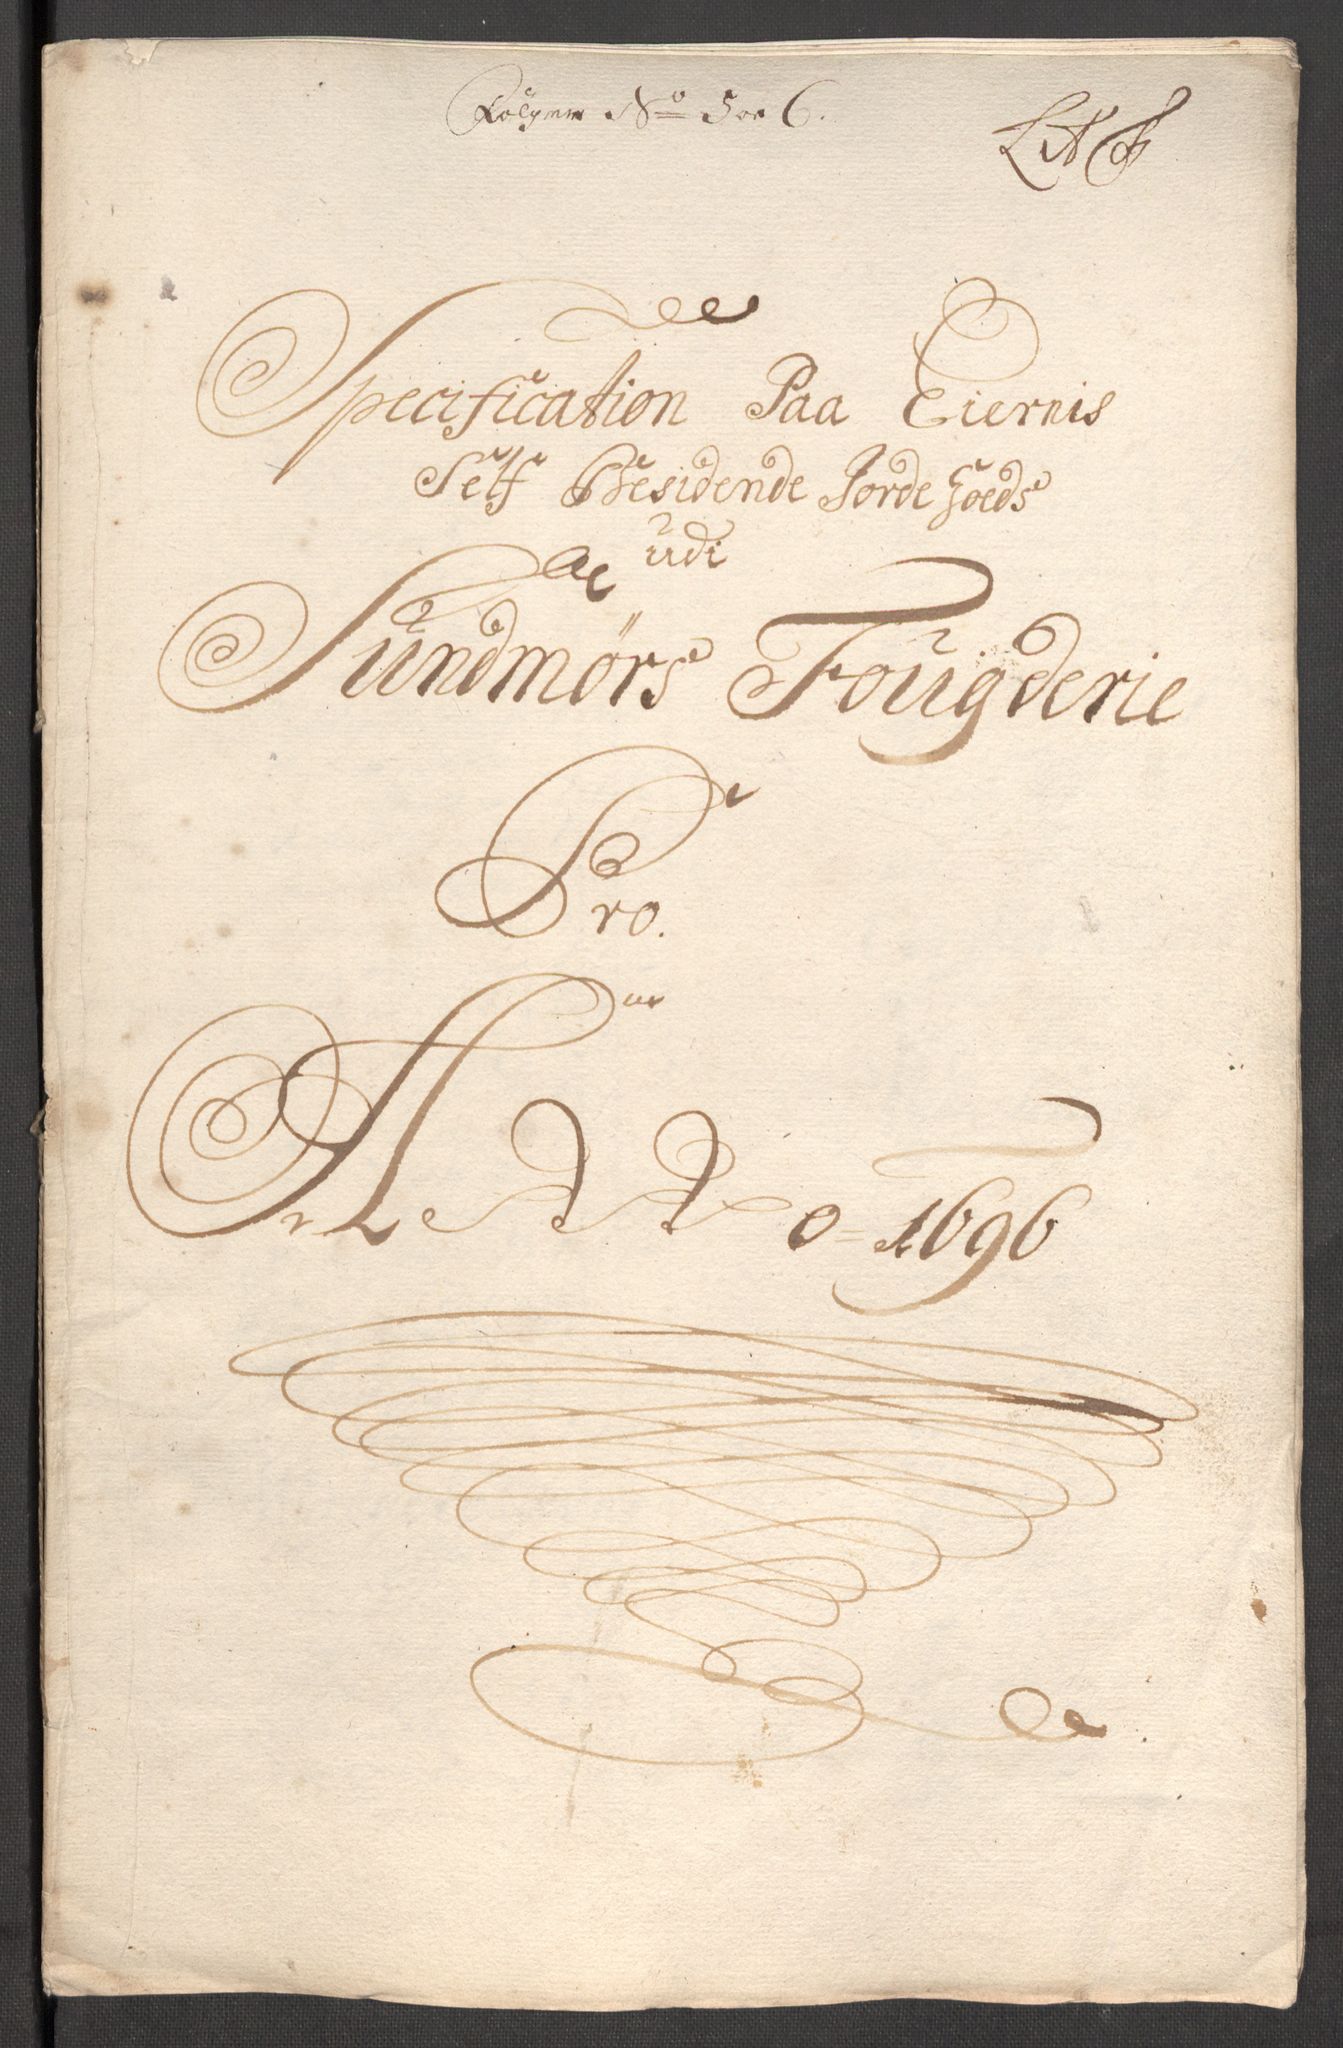 Følger No 5 oc 6.
Lit
Specification Paa Eiernis
Self Besidende Jorde goeds
udi
Sundmørs Fougderie
Pro.
Anno 1696